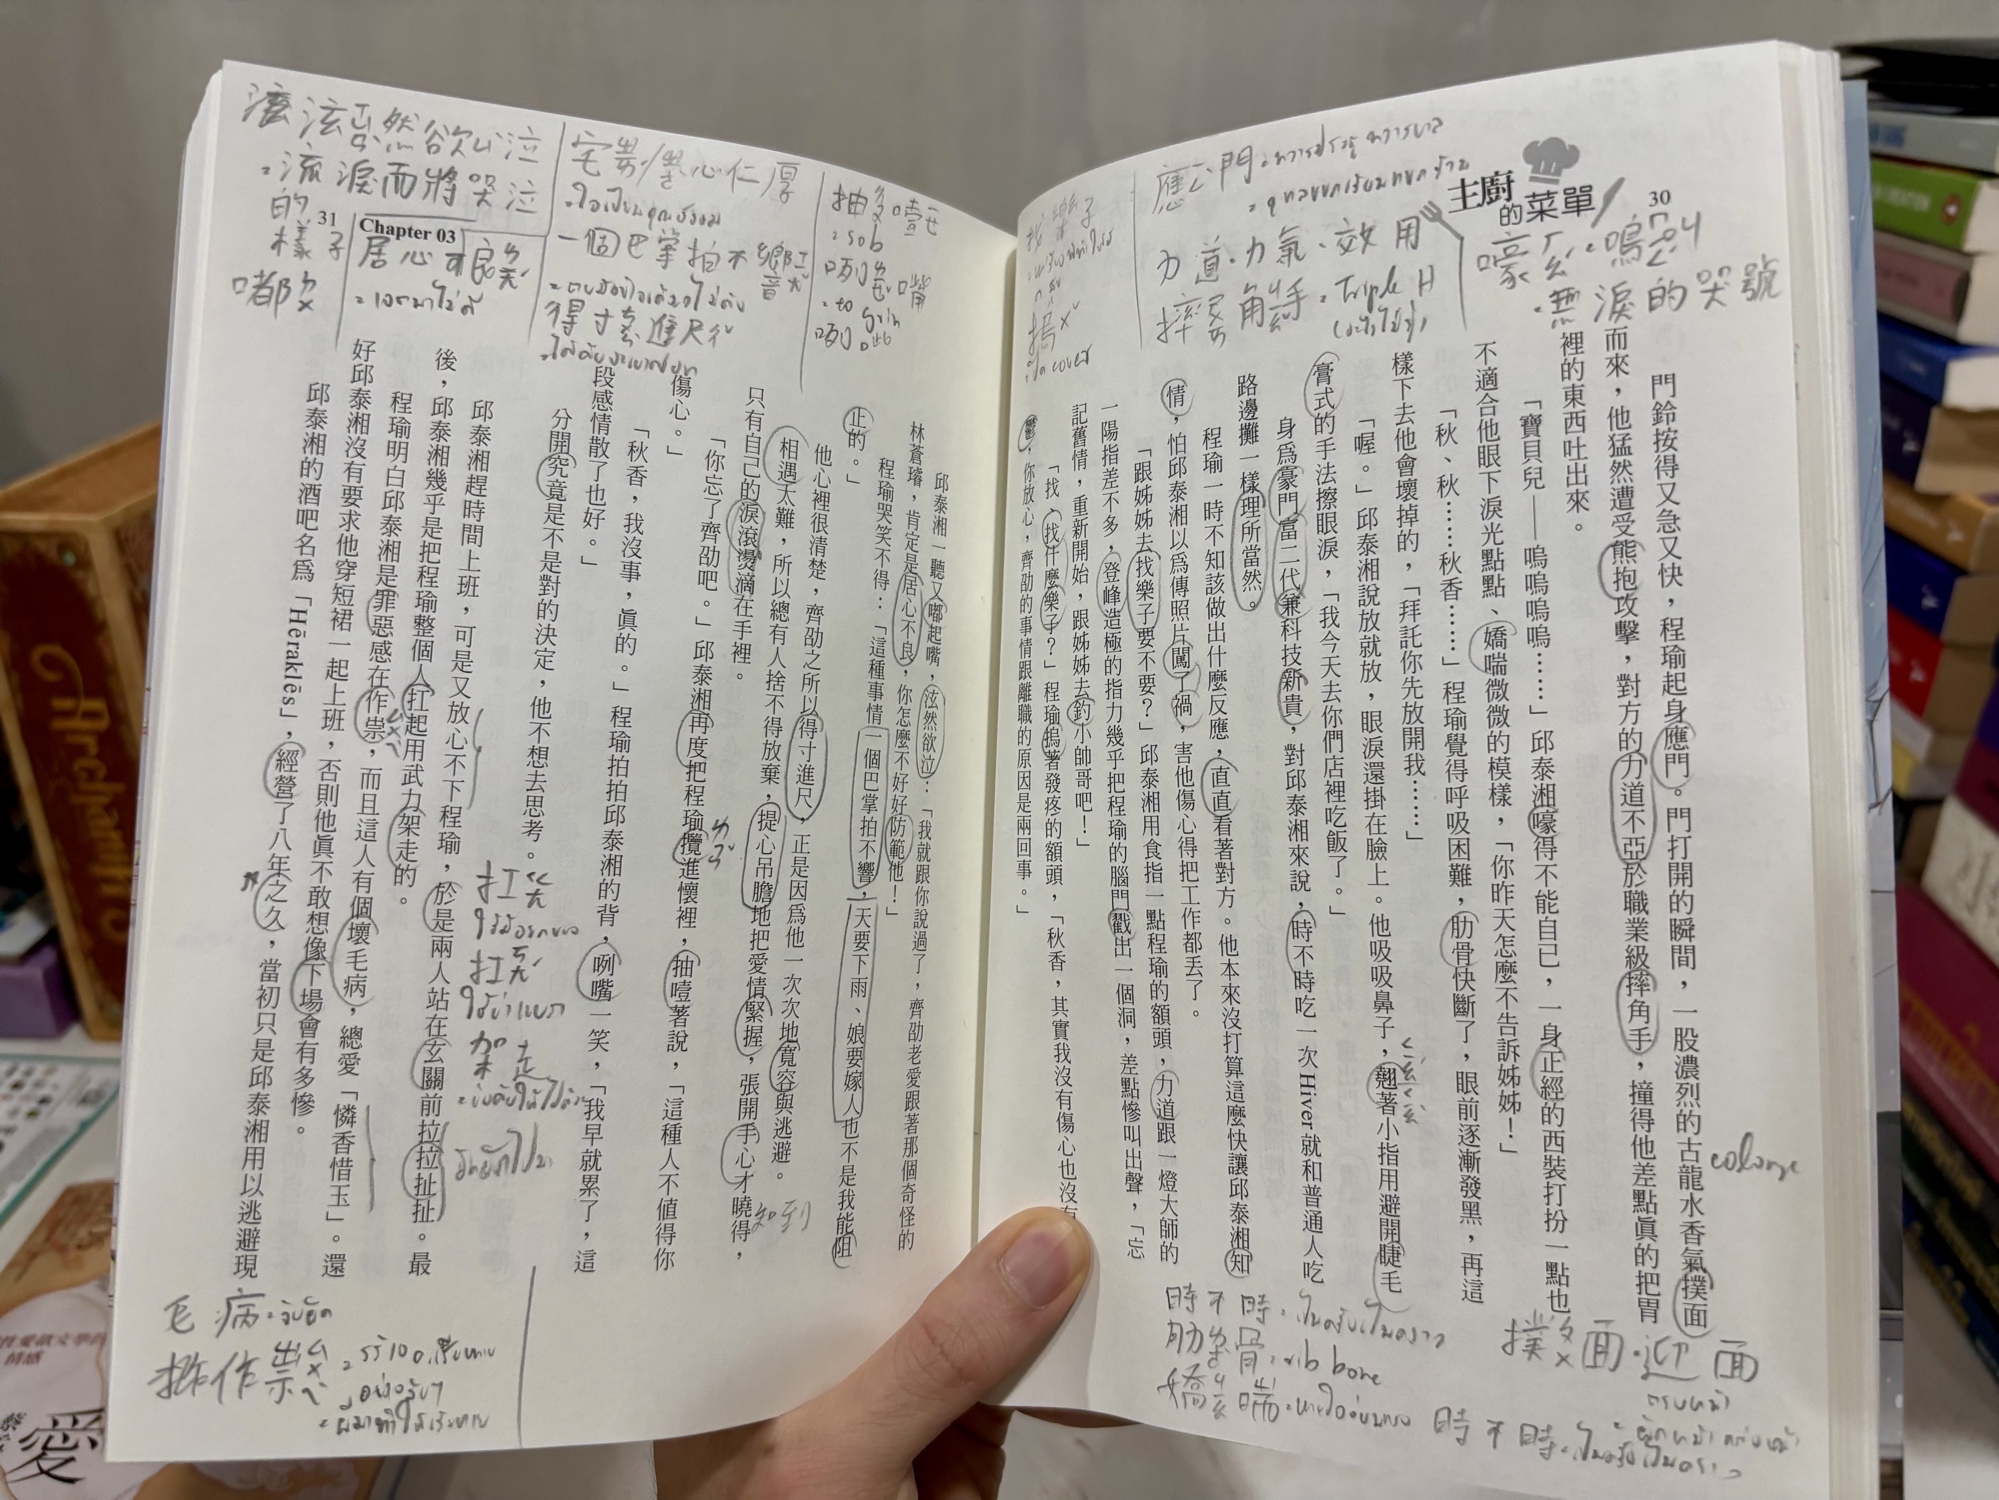 30
主廚
的菜單
門鈴按得又急又快，程瑜起身應門。門打開的瞬間，一股濃烈的古龍水香氣撲面
而來，他猛然遭受熊抱攻擊，對方的力道不亞於職業級摔角手，撞得他差點真的把胃
裡的東西吐出來。
「寶貝兒——嗚嗚嗚嗚……」邱泰湘嚎得不能自已，一身正經的西裝打扮一點也
不適合他眼下淚光點點、嬌喘微微的模樣，「你昨天怎麼不告訴姊姊！」
「秋、秋……秋香……」程瑜覺得呼吸困難，肋骨快斷了，眼前逐漸發黑，再這
樣下去他會壞掉的，「拜託你先放開我……」
「喔。」邱泰湘說放就放，眼淚還掛在臉上。他吸吸鼻子，翹著小指用避開睫毛
膏式的手法擦眼淚，「我今天去你們店裡吃飯了。」
身為豪門富二代兼科技新貴，對邱泰湘來說，時不時吃一次Hiver就和普通人吃
路邊攤一樣理所當然。
程瑜一時不知該做出什麼反應，直直看著對方。他本來沒打算這麼快讓邱泰湘知
情，怕邱泰湘以為傳照片闖了禍，害他傷心得把工作都丟了。
「跟姊姊去找樂子要不要？」邱泰湘用食指一點程瑜的額頭，力道跟一燈大師的
一陽指差不多，登峰造極的指力幾乎把程瑜的腦門戳出一個洞，差點慘叫出聲，「忘
記舊情，重新開始，跟姊姊去釣小帥哥吧！」
「找、找什麼樂子？」程瑜摀著發疼的額頭，「秋香，其實我沒有傷心也沒有
鬱，你放心，齊劭的事情跟離職的原因是兩回事。」
嚎 嗚
無淚的哭號
應門
力道 力氣、效用
摔角 Triple H
找樂子
摀
cover
cologne
撲面 迎面
時不時
肋骨 rib bone
嬌喘
時不時
31
Chapter 03
邱泰湘一聽又嘟起嘴，泫然欲泣：「我就跟你說過了，齊劭老愛跟著那個奇怪的
林蒼璿，肯定是居心不良，你怎麼不好好防範他！」
程瑜哭笑不得：「這種事情一個巴掌拍不響，天要下雨、娘要嫁人也不是我能阻
止的。」
他心裡很清楚，齊劭之所以得寸進尺，正是因為他一次次地寬容與逃避。
相遇太難，所以總有人捨不得放棄，提心吊膽地把愛情緊握，張開手心才曉得，
只有自己的淚滾燙滴在手裡。
「你忘了齊劭吧。」邱泰湘再度把程瑜攬進懷裡，抽噎著說，「這種人不值得你
傷心。」
「秋香，我沒事，真的。」程瑜拍拍邱泰湘的背，咧嘴一笑，「我早就累了，這
段感情散了也好。」
分開究竟是不是對的決定，他不想去思考。
邱泰湘趕時間上班，可是又放心不下程瑜，於是兩人站在玄關前拉拉扯扯。最
後，邱泰湘幾乎是把程瑜整個人扛起用武力架走的。
程瑜明白邱泰湘是罪惡感在作祟，而且這人有個壞毛病，總愛「憐香惜玉」。還
好邱泰湘沒有要求他穿短裙一起上班，否則他真不敢想像下場會有多慘。
邱泰湘的酒吧名為「Hēraklēs」，經營了八年之久，當初只是邱泰湘用以逃避現
抽噎
= sob
咧嘴
= to grin
心仁厚
一個巴掌拍不響
得寸進尺
泫然欲泣
= 流淚而將哭泣
的樣子
居心不良
嘟
扛
扛
架走
知到
毛病
作祟
Archamh
愛